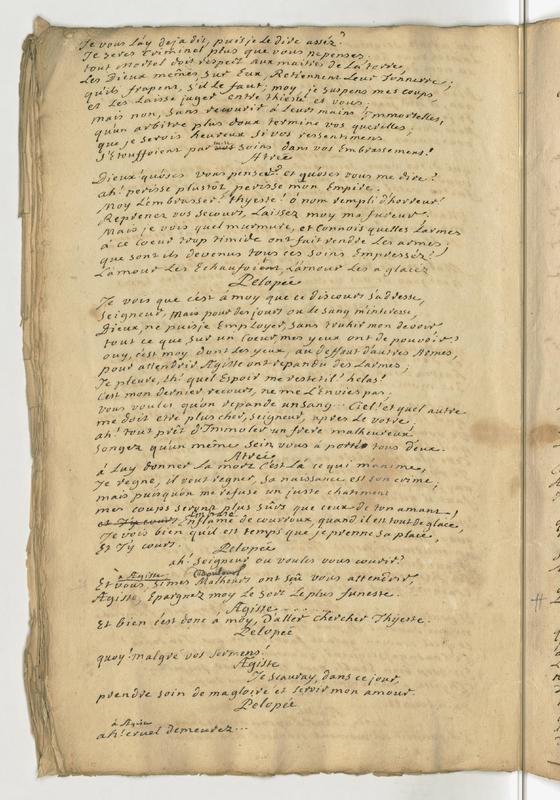 Je vous l'ay deja dit, puis je le dire assez?
Je serois Criminel plus que vous ne penses;
tout mortel doit respect aux maitres de La terre,
Les Dieux mêmes, sur Eux, Retiennent Leur Tonnerre;
qu'ils frapent, s'il Le faut; moy, je suspens mes coups,
et Les Laisse juger entre thieste et vous;
mais non, sans recourir à Leurs mains immortelles,
qu'un arbitre plus doux termine vos querelles;
que je serois heureux si vos ressentimens
s'étouffoient par soins dans vos Embrassemens!
Atrée
Dieux! qu'oses vous penser? et qu'oses vous me dire?
ah! perisse plustôt, perisse mon Empire.
Moy L'embrasser! thyeste! ô nom rempli d'horreur!
Reprenez vos secours, Laissez moy ma fureur;
Mais je vois quel murmure, et Connois quelles Larmes
à ce Coeur trop timide ont fait rendre Les armes;
que sont ils devenus tous ces soins Empressez?
L'amour Les Echaufoient, L'amour Les a glacez
Pelopée
Je vois que c'est à moy que ce discours s'adresse,
Seigneur, Mais pour des jours ou le sang m'interesse,
Dieux, ne puis je Employer, sans trahir mon devoir
tout ce que sur un Coeur mes yeux ont de pouvoir?
ouy, c'est moy dont Les yeux, au deffaut d'autres Armes,
pour attendrir Ægiste ont repandu des Larmes;
Je pleure, Eh! quel Espoir me reste til? helas!
C'est mon dernier recours, ne me L'envies pas;
vous voules qu'on repande un sang... Ciel! et quel autre
me doit etre plus cher, Seigneur, apres Le votre;
ah! tout prêt d'Immoler un frere malheureux
songez qu'un même sein vous a portés tous deux.
Atrée
à Luy donner La mort C'est Là ce qui m'anime,
Je regne, il veut regner, sa naissance est son crime;
mais puisqu'on me refuse un juste chatiment
mes coups seront plus sûrs que ceux de ton amant;
et J'y cours. n'flame de courroux, quand il est tout de glace,
Je vois bien qu'il est temps que je prenne sa place,
Et J'y cours.
Pelopée
ah! Seigneur ou voules vous courir?
à Ægiste
Et vous, si mes Malheurs ont scû vous attendrir,
Ægiste, Epargnez moy Le sort Le plus funeste.
Ægiste
Et bien c'est donc à moy, d'aller Chercher Thyeste.
Pelopée
quoy! malgré vos sermens!
Ægiste
Je scauray, dans ce jour,
prendre soin de ma gloire et servir mon amour
Pelopée
à Ægiste
ah! cruel demeurez...